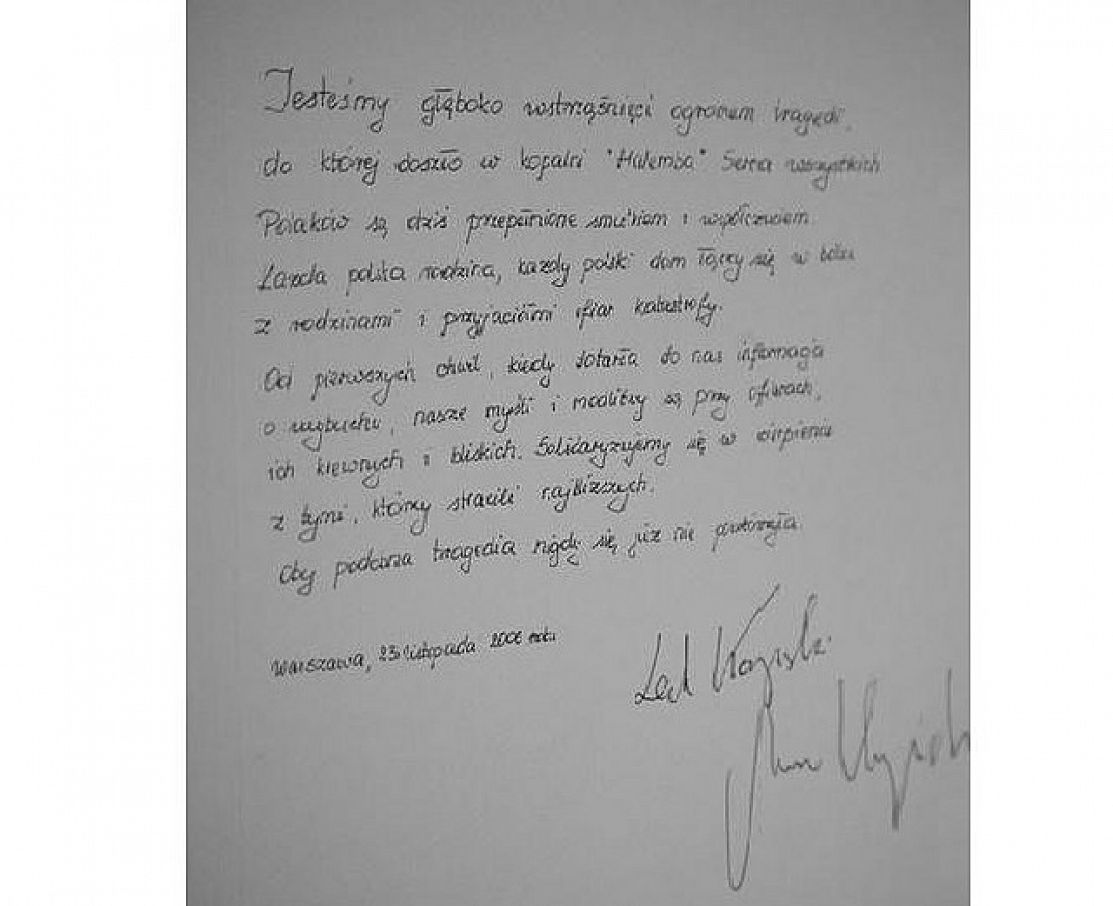 Jesteśmy głęboko wstrząśnięci ogromem tragedii,
do której doszło w kopalni "Halemba" Serca wszystkich
Polaków są dziś przepełnione smutkiem i współczuciem.
Każda polska rodzina, każdy polski dom łączy się w bólu
z rodzinami i przyjaciółmi ofiar katastrofy.
Od pierwszych chwil, kiedy dotarła do nas informacja
o wybuchu, nasze myśli i modlitwy są przy ofiarach,
ich krewnych i bliskich. Solidaryzujemy się w cierpieniu
z tymi, którzy stracili najbliższych.
Oby podobna tragedia nigdy się już nie powtórzyła.
Warszawa, 23 listopada 2006 roku
Lech Kaczyński